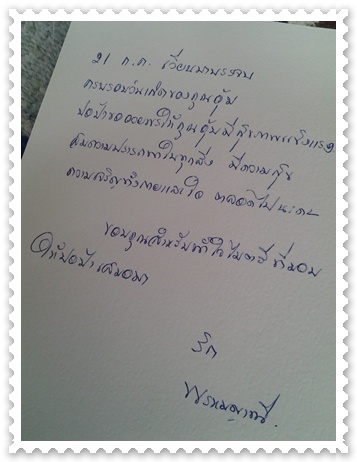 21 ก.ค. เวียนมาบรรจบ
ครบรอบวันเกิดของคุณอุ้ม
ป้าขออวยพรให้คุณอุ้มมีสุขภาพแข็งแรง
สมความปรารถนาในทุกสิ่ง มีความสุข
ความเจริญทั้งกายและใจ ตลอดไปนะคะ
ขอบคุณสำหรับน้ำใจไมตรีที่มอบ
ให้ป้าเสมอมา
รัก